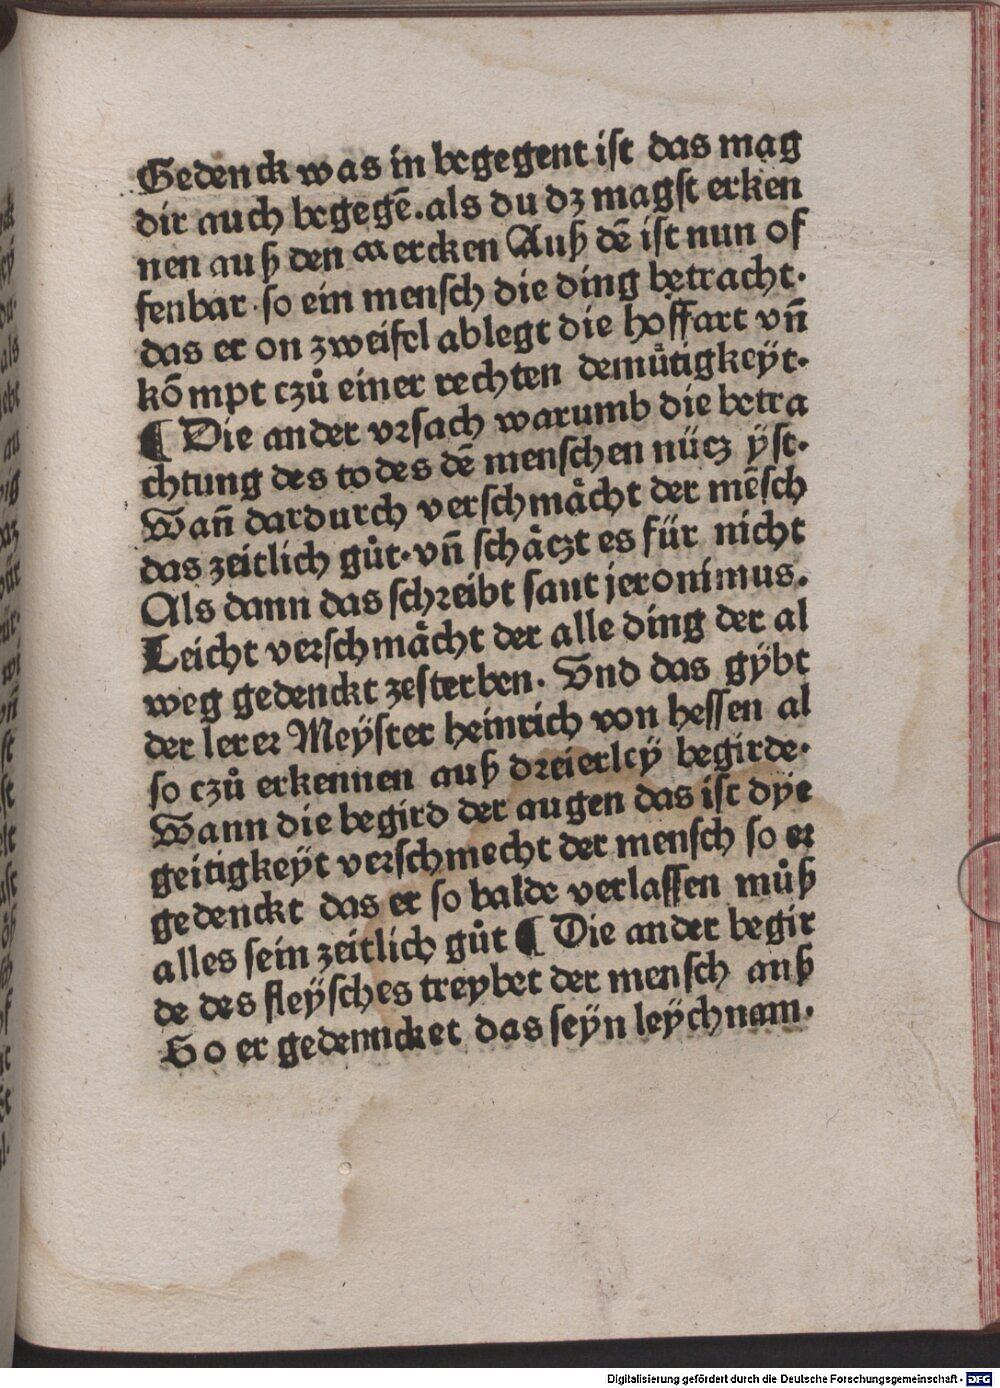 Gedenck was in begegent ist das mag
dir auch begegē. als du dz magst erken
nen auß den mercken Auß dē ist nun of
fenbar· so ein mensch die ding betracht·
das er on zweifel ablegt die hoffart vn̄
kōmpt czů einer rechten demůtigkeÿt·
¶ Die ander vrsach warumb die betra
chtung des todes dē menschen nücz ÿst·
Wan̄ dardurch verschmåcht der mēsch
das zeitlich gůt· vn̄ schåczt es für nicht
Als dann das schreibt sant jeronimus.
Leicht verschmåcht der alle ding der al
weg gedenckt zesterben. Vnd das gÿbt
der lerer Meÿster heinrich von hessen al
so czů erkennen auß dreierleÿ begirde·
Wann die begird der augen das ist dÿe
geitigkeÿt verschmecht der mensch so er
gedenckt das er so balde verlassen můß
alles sein zeitlich gůt ¶ Die ander begir
de des fleÿsches treybet der mensch auß
So er gedenncket das seÿn leÿchnam·
Digitalisierung gefördert durch die Deutsche Forschungsgemeinschaft - DFG